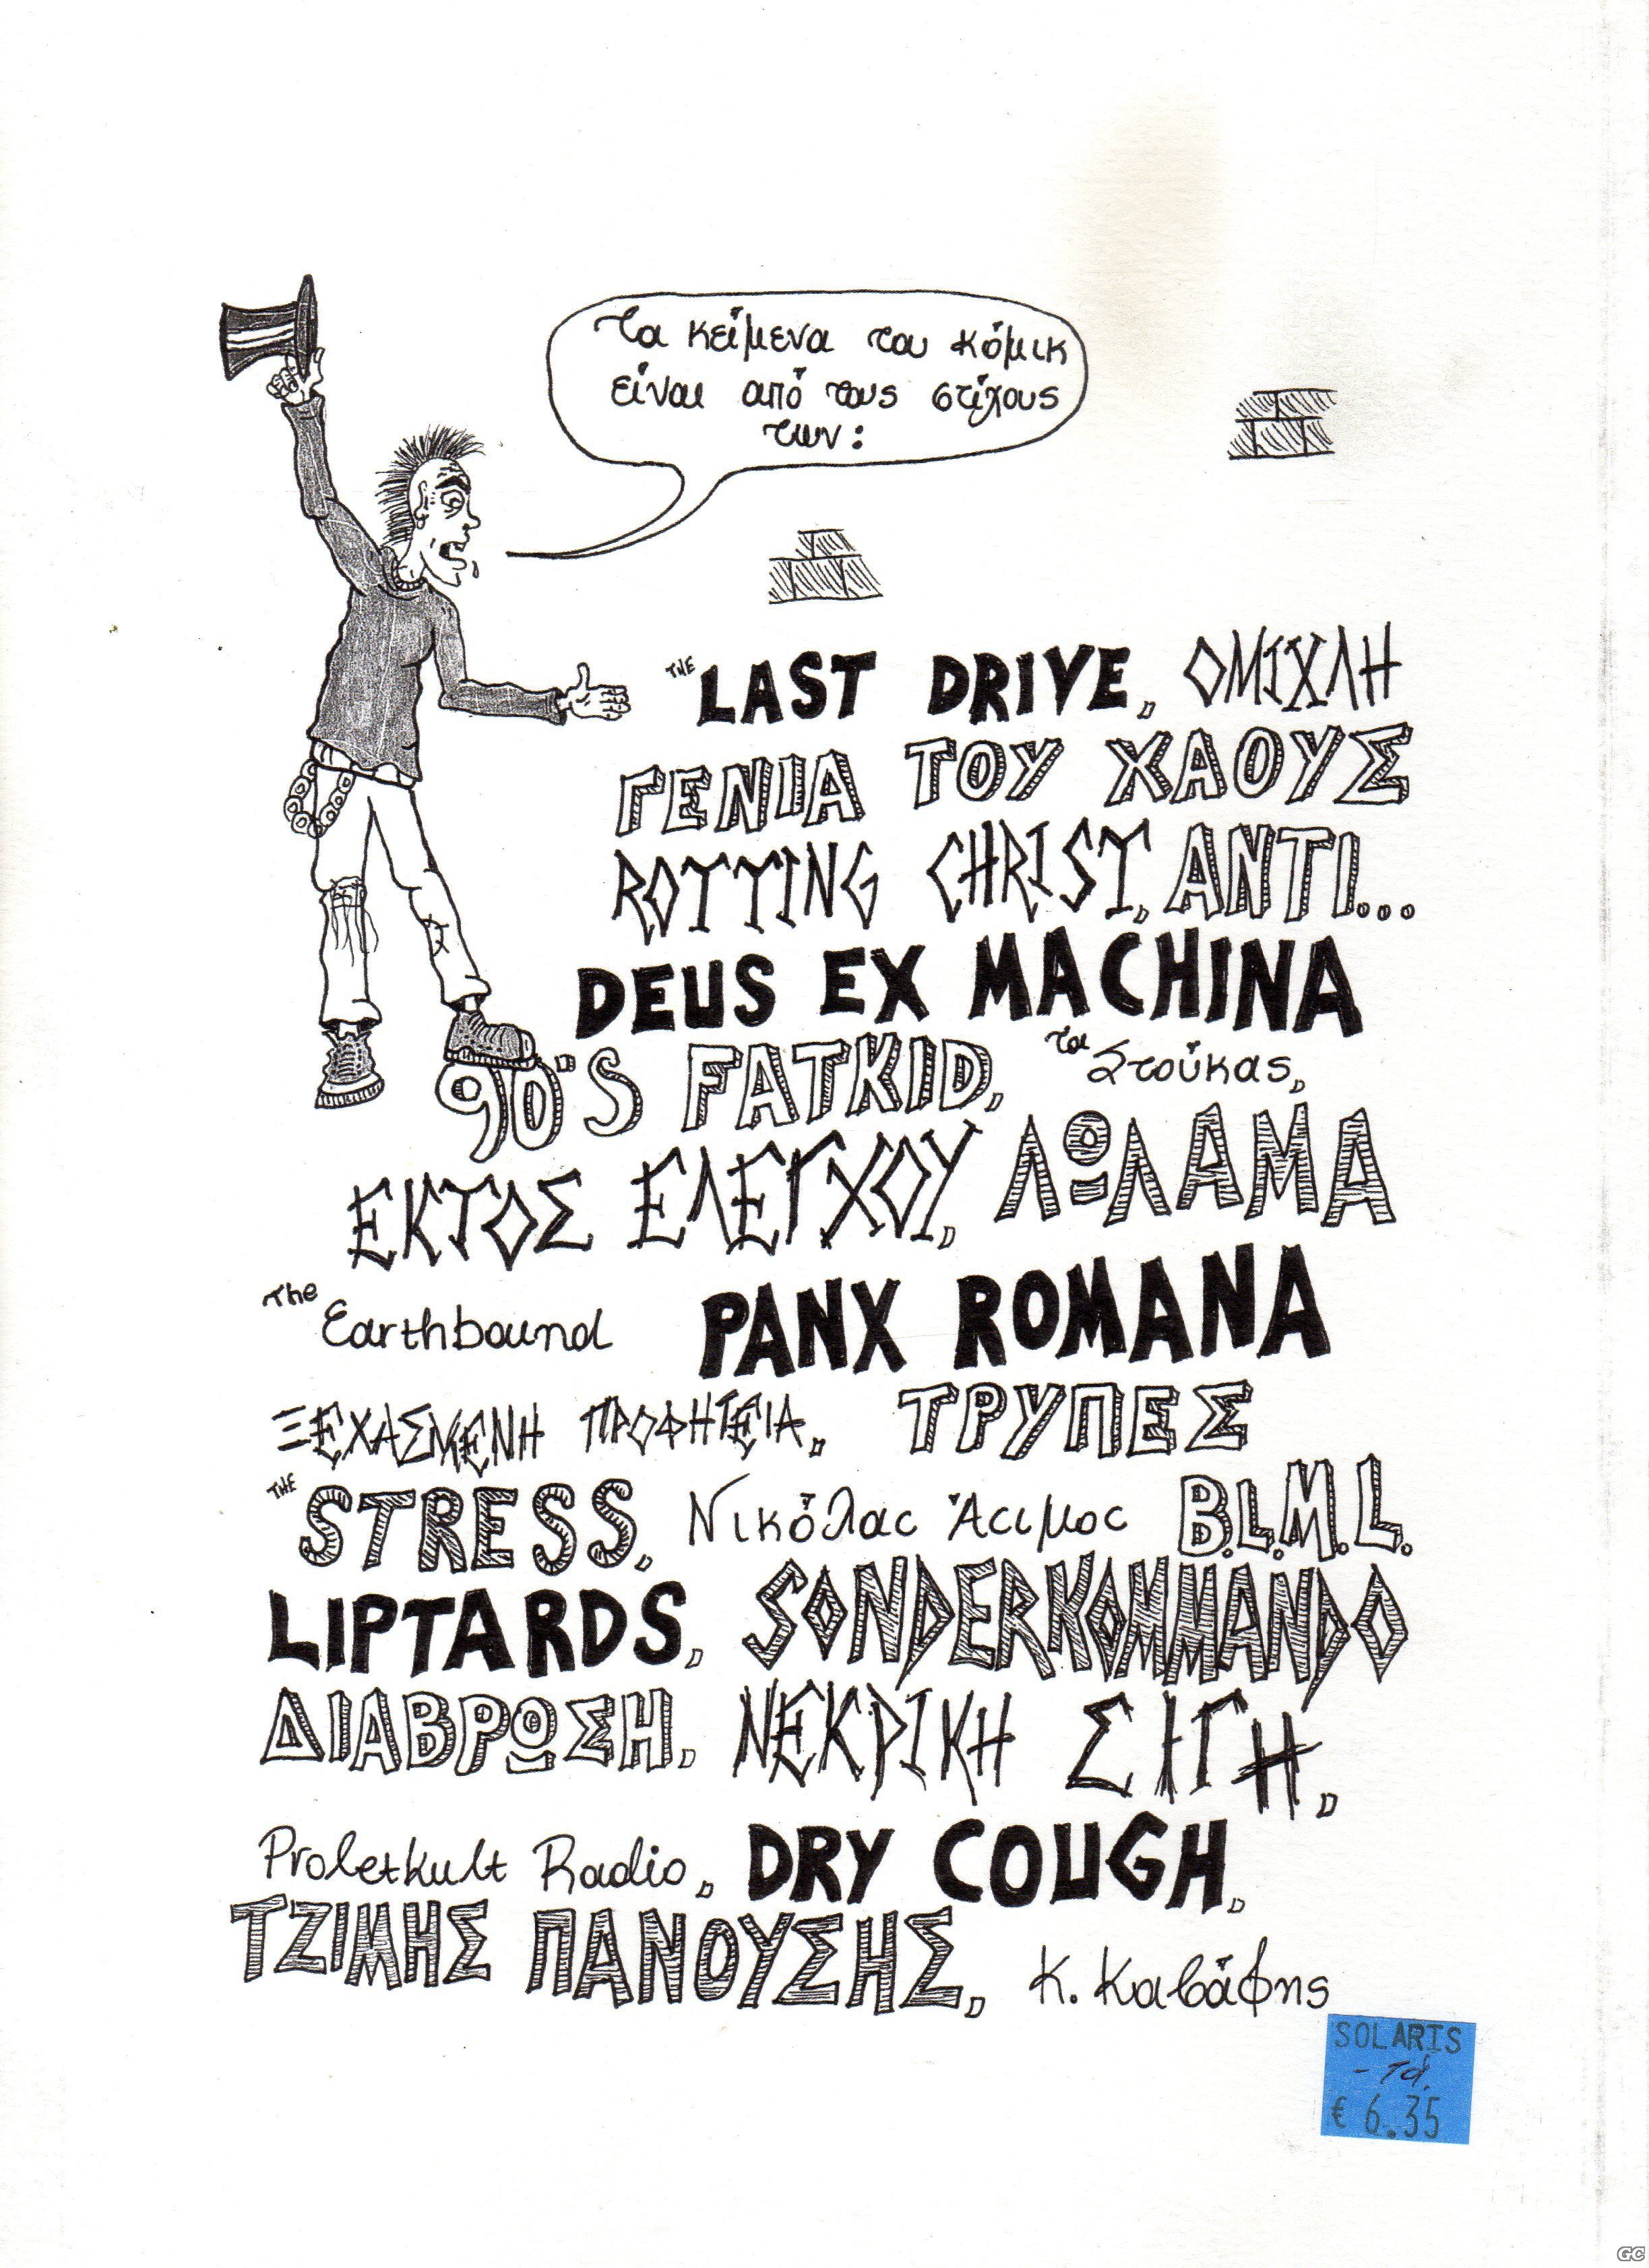 Τα κείμενα του κόμικ
είναι από τους στίχους
των:
THE LAST DRIVE, ΟΜΙΧΛΗ
ΓΕΝΙΑ ΤΟΥ ΧΑΟΥΣ
ROTTING CHRIST, ΑΝΤΙ...
DEUS EX MACHINA
90'S FATKID, τα Στούκας,
ΕΚΤΟΣ ΕΛΕΓΧΟΥ, ΛΩΛΑΜΑ
The Earthbound PANX ROMANA
ΞΕΧΑΣΜΕΝΗ ΠΡΟΦΗΤΕΙΑ, ΤΡΥΠΕΣ
THE STRESS, Νικόλας Άσιμος B.L.M.L.
LIPTARDS, SONDERKOMMANDO
ΔΙΑΒΡΩΣΗ, ΝΕΚΡΙΚΗ ΣΙΓΗ,
Proletkult Radio, DRY COUGH,
ΤΖΙΜΗΣ ΠΑΝΟΥΣΗΣ, Κ. Καβάφης
SOLARIS
€ 6.35
GC